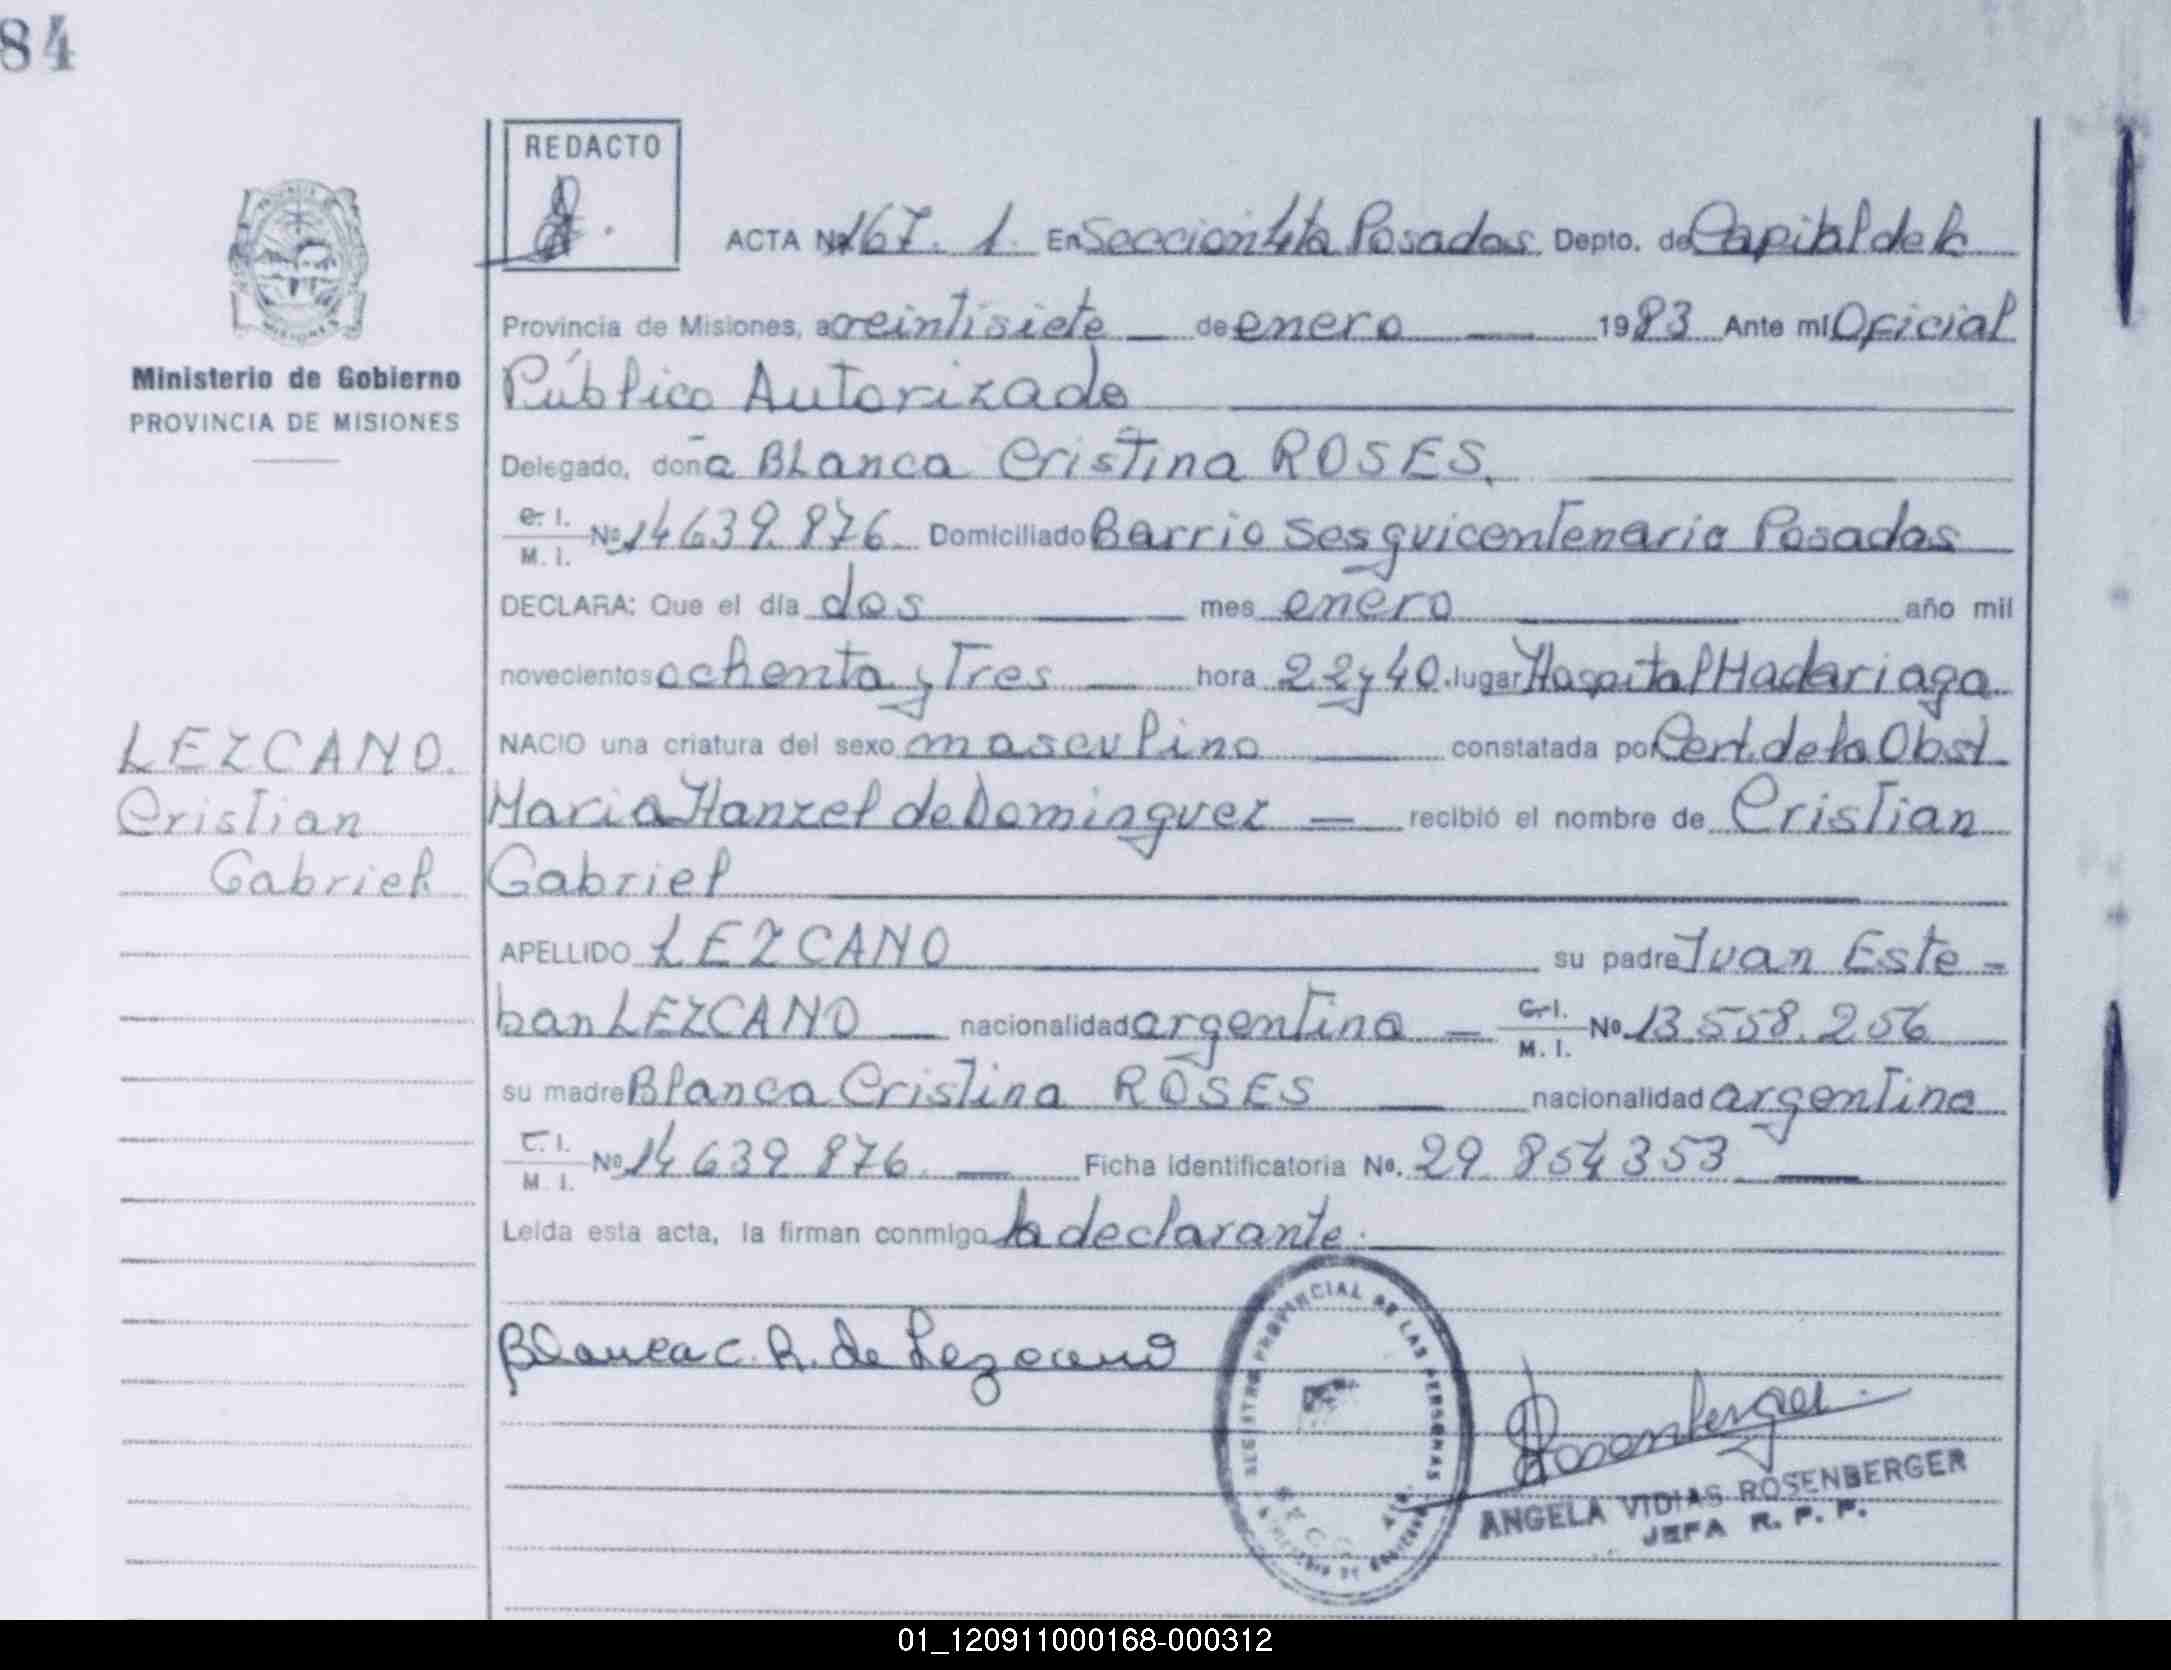 84
REDACTO
ACTA Nº 167. 1. En Seccion 4ta Posadas Depto. de Capital de la
Provincia de Misiones, a veintisiete de enero 1983 Ante mí Oficial
Ministerio de Gobierno
PROVINCIA DE MISIONES
Público Autorizado
Delegado, doña BLanca Cristina ROSES.
C. I.
M. I. Nº 14639.876 Domiciliado Barrio Sesquicentenario Posadas
DECLARA: Que el día dos mes enero año mil
novecientos ochenta y Tres hora 22 y 40. lugar Hospital Madariaga
LEZCANO.
Cristian
Gabriel
NACIO una criatura del sexo masculino constatada por Cert. de la Obst.
Maria Hanzel de Dominguez recibió el nombre de Cristian
Gabriel
APELLIDO LEZCANO su padre Juan Este-
ban LEZCANO nacionalidad argentina C. I.
M. I. Nº 13.558.256
su madre Blanca Cristina ROSES nacionalidad argentina
C. I.
M. I. Nº 14 639 876. Ficha identificatoria Nº. 29.854353
Leída esta acta, la firman conmigo la declarante.
Blanca C. R. de Lezcano
REGISTRO PROVINCIAL DE LAS PERSONAS
Rosenberger
ANGELA VIDIAS ROSENBERGER
JEFA R. P. P.
01_120911000168-000312